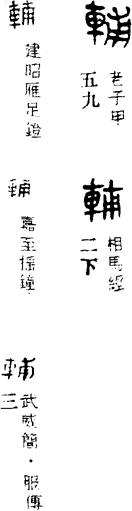 輔
老子甲
五九
輔
相馬經
二下
輔
建昭雁足鐙
輔
嘉至搖鐘
輔
武威簡·服傳
三